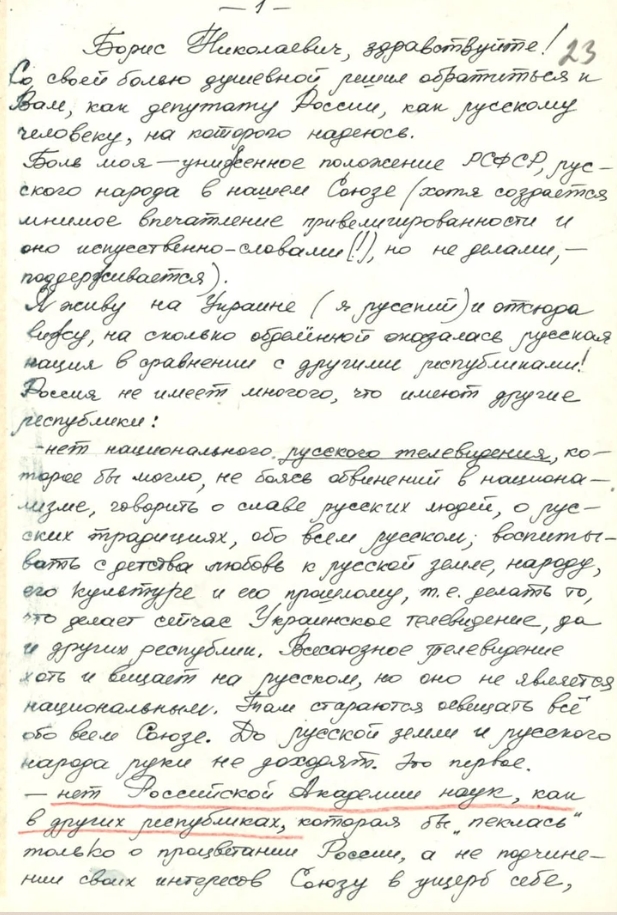 — 1 —
Борис Николаевич, здравствуйте! 23
Со своей болью душевной решил обратиться к
Вам, как депутату России, как русскому
человеку, на которого надеюсь.
Боль моя — униженное положение РСФСР, рус-
ского народа в нашем Союзе (хотя создается
мнимое впечатление привелигированности и
оно искуственно-словами (!), но не делами, —
поддерживается).
Я живу на Украине (я русский) и отсюда
вижу, на сколько обделённой оказалась русская
нация в сравнении с другими республиками!
Россия не имеет многого, что имеют другие
республики:
- нет национального русского телевидения, ко-
торое бы могло, не боясь обвинений в национа-
лизме, говорить о славе русских людей, о рус-
ских традициях, обо всем русском; воспиты-
вать с детства любовь к русской земле, народу,
его культуре и его прошлому, т.е. делать то,
что делает сейчас Украинское телевидение, да
и других республик. Всесоюзное телевидение
хоть и вещает на русском, но оно не является
национальным. Там стараются освещать всё
обо всем Союзе. До русской земли и русского
народа руки не доходят. Это первое.
— нет Российской Академии наук, как
в других республиках, которая бы „пеклась“
только о процветании России, а не подчине-
нии своих интересов Союзу в ущерб себе,